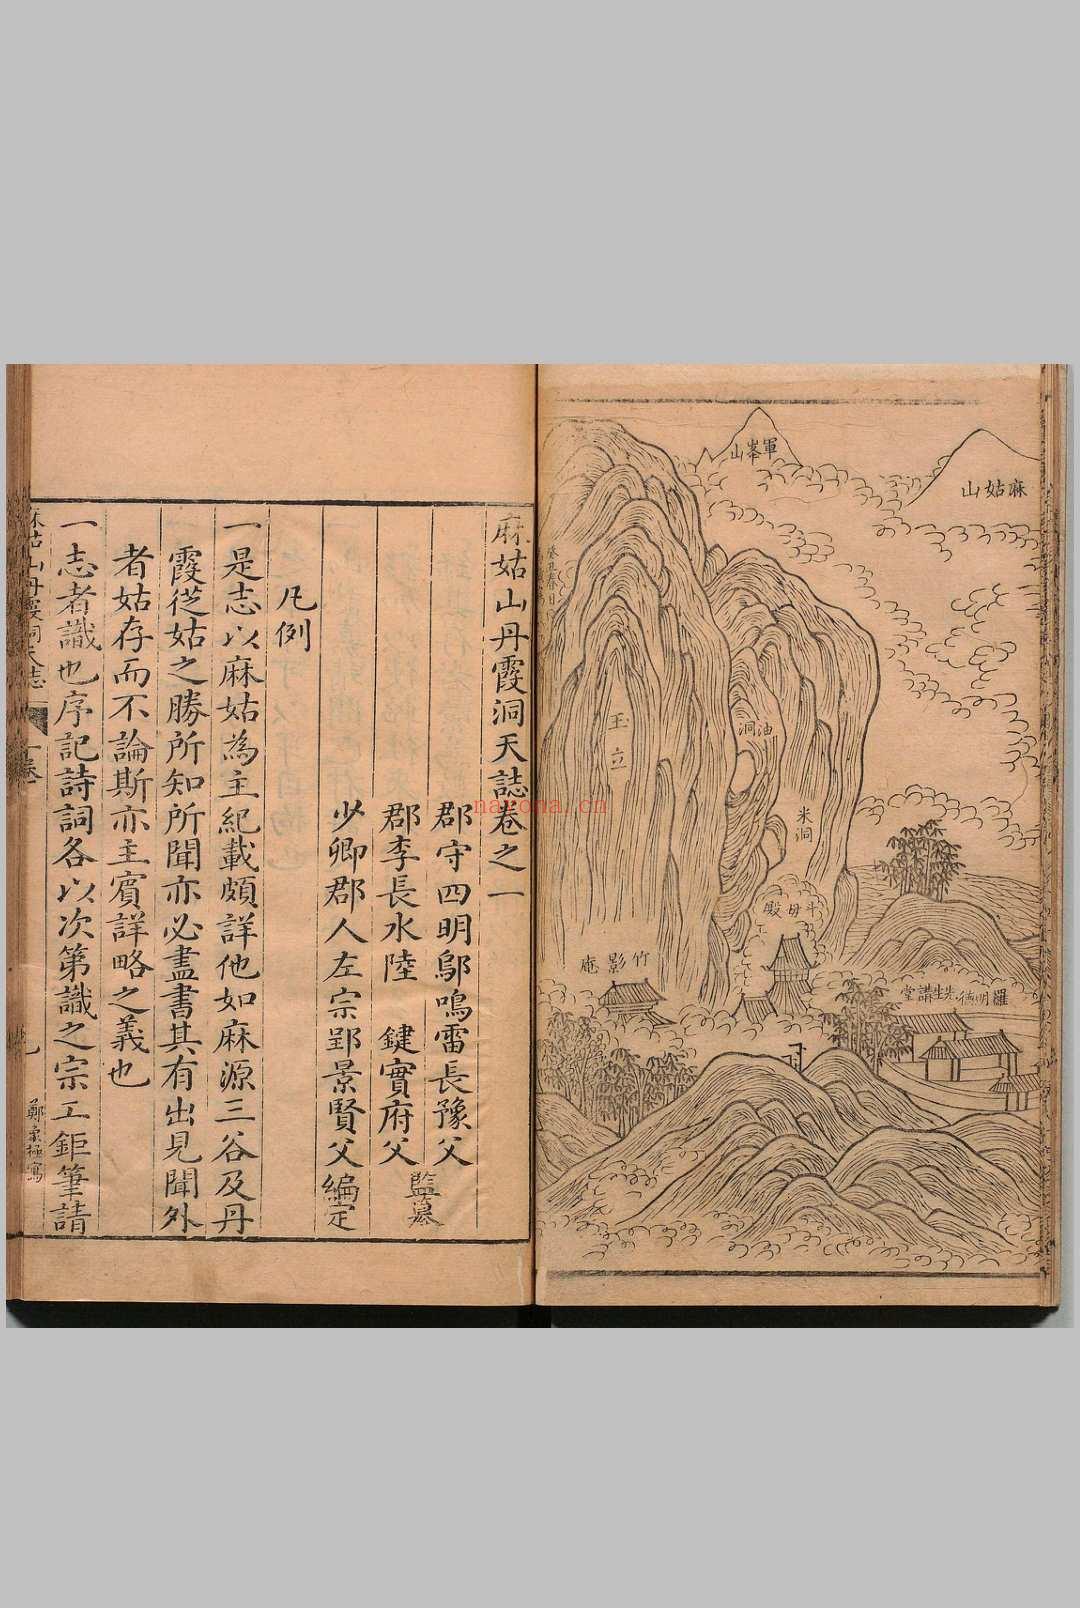 軍峯山
麻姑山
玉立
油洞
米洞
斗母殿
竹影庵
羅明德先生講堂
麻姑山丹霞洞天誌卷之一
郡守四明鄔鳴雷長豫父
郡李長水陸 鍵實府父
監纂
少卿郡人左宗郢景賢父編定
凡例
一是志以麻姑為主紀載頗詳他如麻源三谷及丹
霞從姑之勝所知所聞亦必盡書其有出見聞外
者姑存而不論斯亦主賓詳略之義也
一志者識也序記詩詞各以次第識之宗工鉅筆請
麻姑山丹霞洞天志
卷一
鄭
寫
nayona.cn